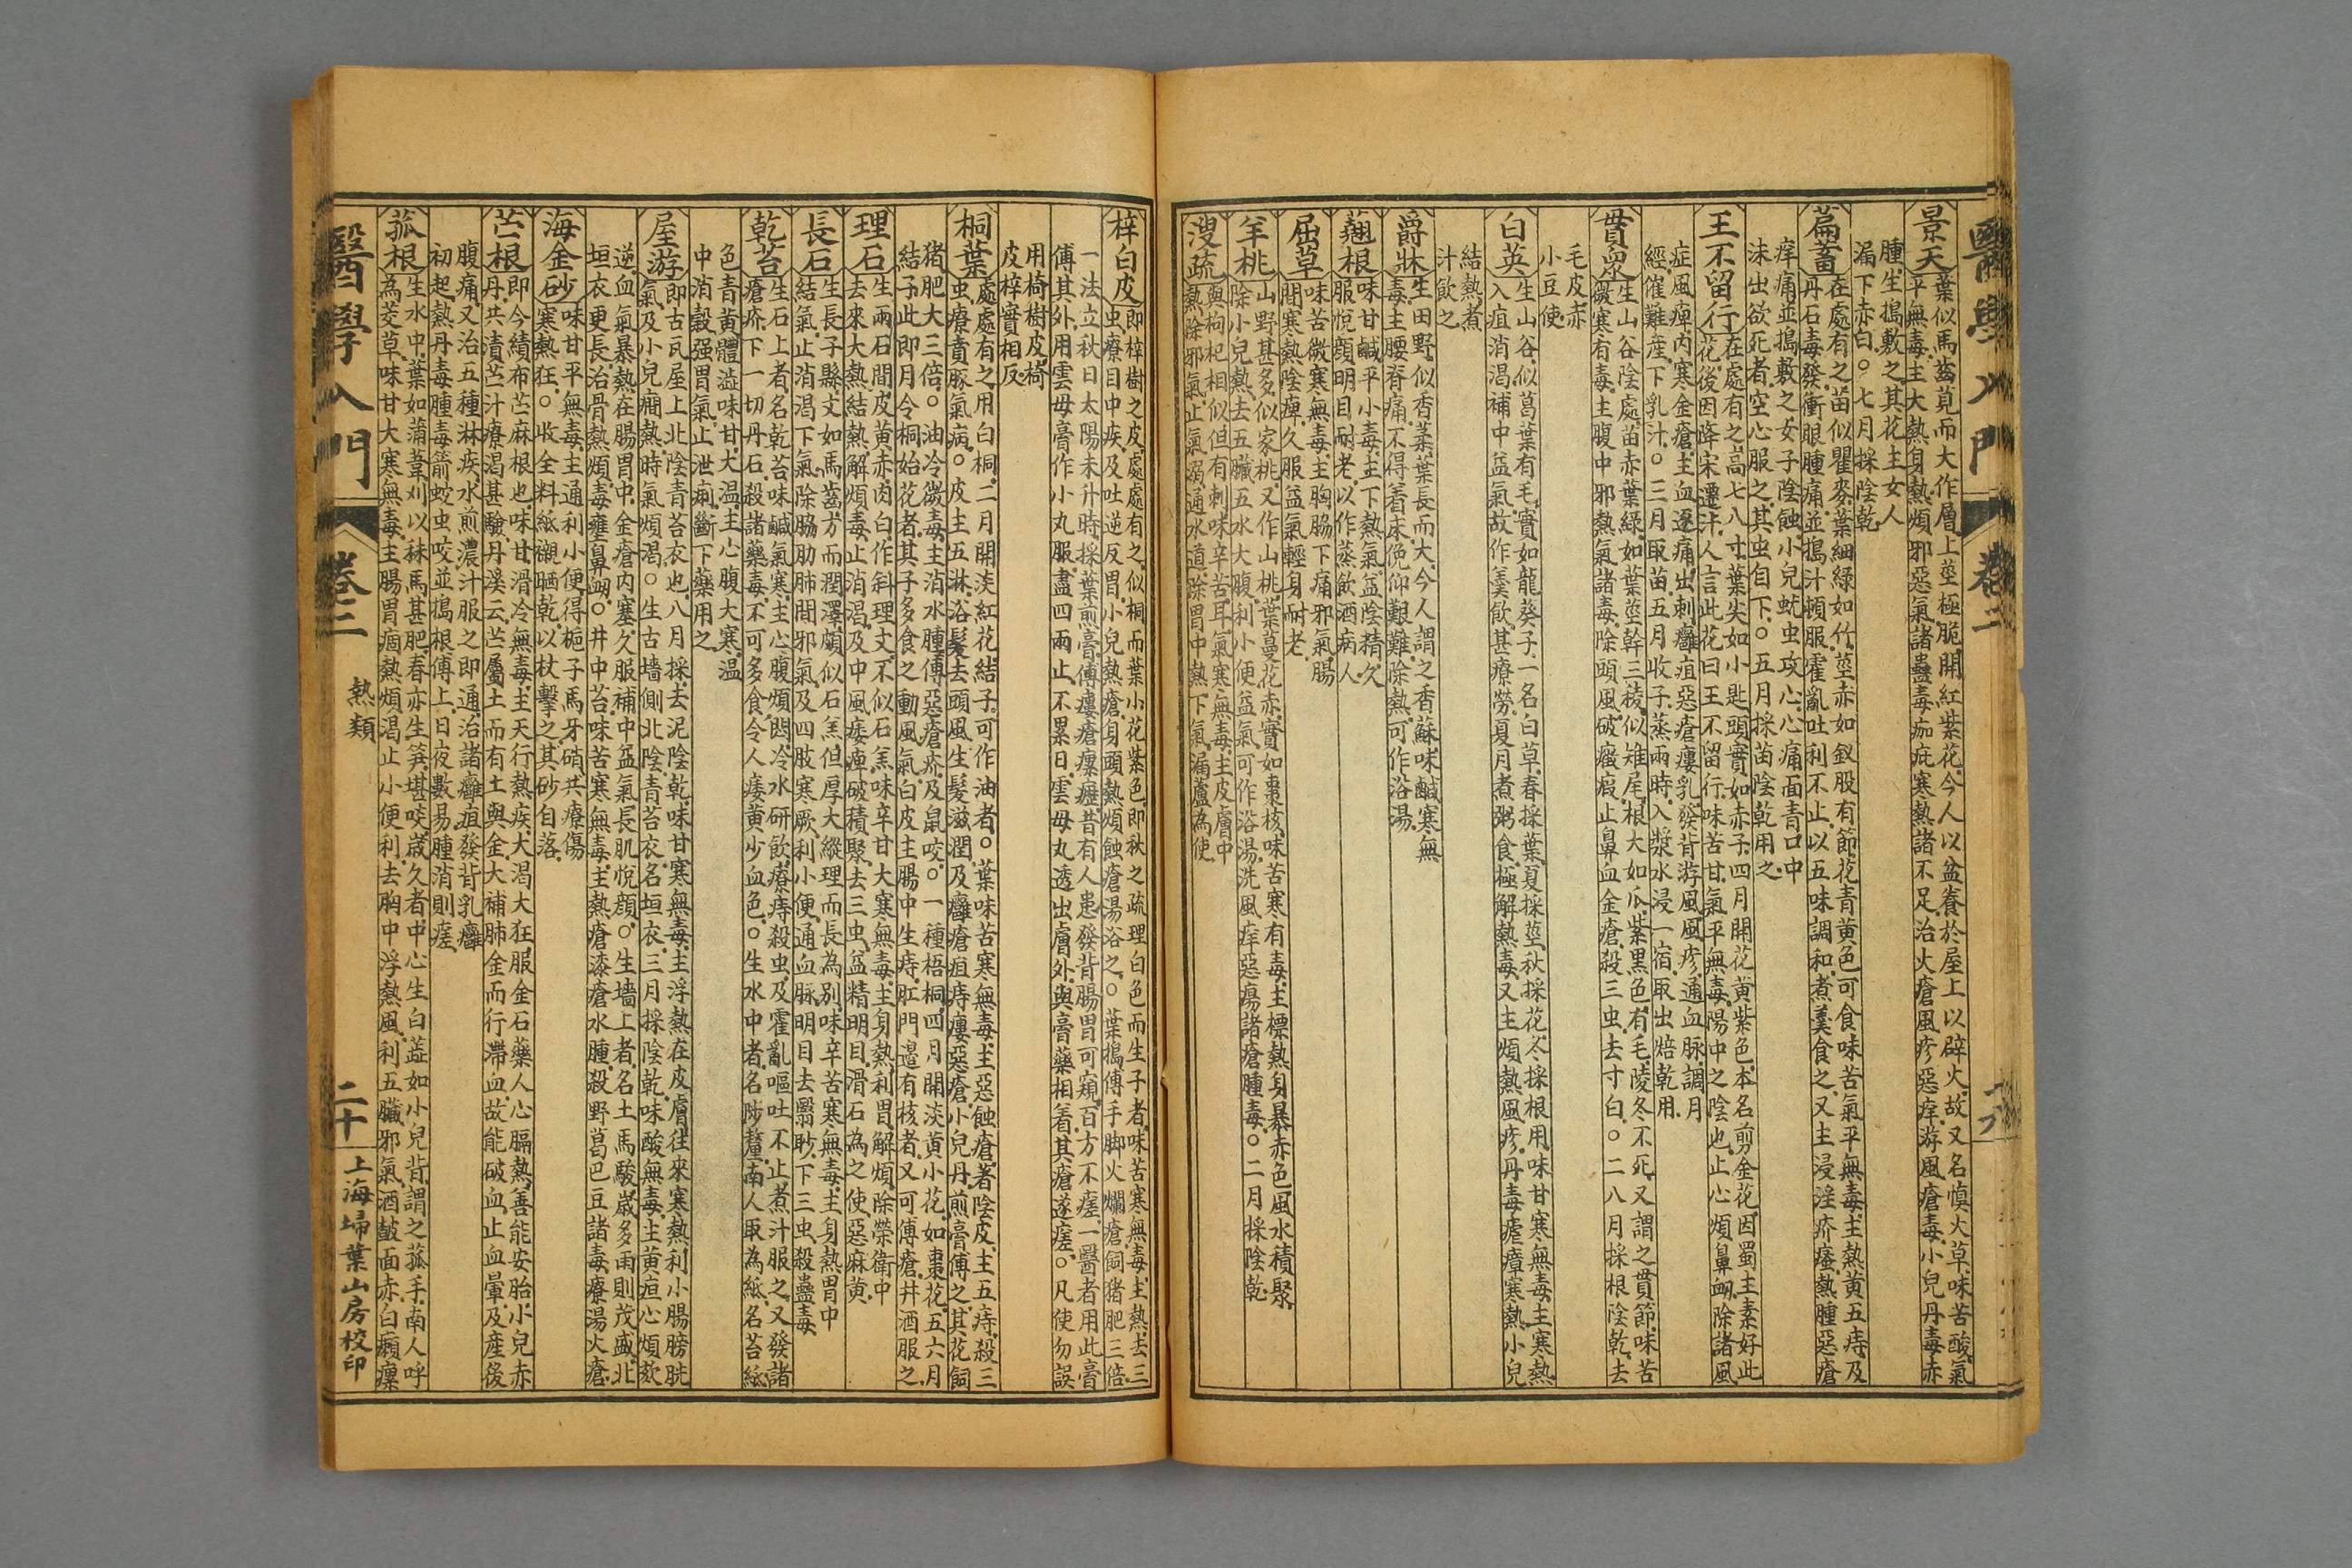 醫學入門
卷二
景天
葉似馬齒莧而大作層上莖極脆開紅紫花今人以盆養於屋上以辟火故又名慎火草味苦酸氣
平無毒主大熱身熱煩邪惡氣諸蠱毒痂疕寒熱諸不足治火瘡風疹惡痒游風瘡毒小兒丹毒赤
腫生搗敷之其花主女人
漏下赤白○七月採陰乾
萹蓄
在處有之苗似瞿麥葉細綠如竹莖赤如釵股有節花青黃色可食味苦氣平無毒主熱黃五痔及
丹石毒發衝眼腫痛並搗汁頓服霍亂吐利不止以五味調和煮羹食之又主浸淫疥瘙熱腫惡瘡
痒痛並搗敷之女子陰蝕小兒蚘虫攻心心痛面青口中
沫出欲死者空心服之其虫自下○五月採苗陰乾用之
王不留行
在處有之高七八寸葉尖如小匙頭實如赤子四月開花黃紫色本名剪金花因蜀主素好此
花後因降宋遷汴人言此花曰王不留行味苦甘氣平無毒陽中之陰也止心煩鼻衄除諸風
症風痺內寒金瘡主血逐痛出刺癰疽惡瘡瘻乳發背游風風疹通血脉調月
經催難產下乳汁○三月取苗五月收子蒸兩時入漿水浸一宿取出焙乾用
貫眾
生山谷陰處苗赤葉綠如葉莖幹三稜似雉尾根大如瓜紫黑色有毛陵冬不死又謂之貫節味苦
微寒有毒主腹中邪熱氣諸毒除頭風破癥瘕止鼻血金瘡殺三虫去寸白○二八月採根陰乾去
毛皮赤
小豆使
白英
生山谷似葛葉有毛實如龍葵子一名白草春採葉夏採莖秋採花冬採根用味甘寒無毒主寒熱
入疽消渴補中益氣故作羹飲甚療勞夏月煮粥食極解熱毒又主煩熱風疹丹毒瘧瘴寒熱小兒
結熱煮
汁飲之
爵牀
生田野似香菜葉長而大今人謂之香蘇味鹹寒無
毒主腰脊痛不得著床俛仰艱難除熱可作浴湯
翹根
味甘鹹平小毒主下熱氣益陰精久
服悅顏明目耐老以作蒸飲酒病人
屈草
味苦微寒無毒主胸脇下痛邪氣腸
間寒熱陰痺久服益氣輕身耐老
羊桃
山野甚多似家桃又作山桃葉蔓花赤實如棗核味苦寒有毒主標熱身暴赤色風水積聚
除小兒熱去五臟五水大腹利小便益氣可作浴湯洗風痒惡瘍諸瘡腫毒○二月採陰乾
溲疏
與枸杞相似但有刺味辛苦耳氣寒無毒主皮膚中
熱除邪氣止氣溺通水道除胃中熱下氣漏蘆為使
梓白皮
即梓樹之皮處處有之似桐而葉小花紫色即秋之疏理白色而生子者味苦寒無毒主熱去三
虫療目中疾及吐逆反胃小兒熱瘡身頭熱煩蝕瘡湯浴之○葉搗傅手脚火爛瘡飼猪肥三倍
一法立秋日太陽未升時採葉煎膏傅瘻瘡瘰癧昔有人患發背腸胃可窺百方不瘥一醫者用此膏
傅其外用雲母膏作小丸服盡四兩止不累日雲母丸透出膚外與膏藥相着其瘡遂瘥○凡使勿誤
用椅樹皮椅
皮梓實相反
桐葉
處處有之用白桐二月開淡紅花結子可作油者○葉味苦寒無毒主惡蝕瘡著陰皮主五痔殺三
虫療賁豚氣病○皮主五淋浴髮去頭風生髮滋潤及癰瘡疽痔瘻惡瘡小兒丹煎膏傅之其花飼
猪肥大三倍○油冷微毒主消水腫傅惡瘡疥及鼠咬○一種梧桐四月開淡黃小花如棗花五六月
結子此即月令桐始花者其子多食之動風氣白皮主腸中生痔肛門邊有核者又可傅瘡幷酒服之
理石
生兩石間皮黃赤肉白作斜理文不似石羔味辛甘大寒無毒主身熱利胃解煩除榮衛中
去來大熱結熱解煩毒止消渴及中風痿痺破積聚去三虫益精明目滑石為之使惡麻黃
長石
生長子縣文如馬齒方而潤澤頗似石羔但厚大縱理而長為別味辛苦寒無毒主身熱胃中
結氣止消渴下氣除脇肋肺間邪氣及四肢寒厥利小便通血脉明目去翳眇下三虫殺蠱毒
乾苔
生石上者名乾苔味鹹氣寒主心腹煩悶冷水研飲療痔殺虫及霍亂嘔吐不止煮汁服之又發諸
瘡疥下一切丹石殺諸藥毒不可多食令人痿黃少血色○生水中者名陟釐南人取為紙名苔紙
色青黃體澁味甘大溫主心腹大寒溫
中消穀强胃氣止泄痢斷下藥用之
屋游
即古瓦屋上北陰青苔衣也八月採去泥陰乾味甘寒無毒主浮熱在皮膚往來寒熱利小腸膀胱
氣及小兒癎熱時氣煩渴○生古墻側北陰青苔衣名垣衣三月採陰乾味酸無毒主黃疸心煩欬
逆血氣暴熱在腸胃中金瘡內塞久服補中益氣長肌悅顏○生墻上者名土馬騣歲多雨則茂盛北
垣衣更長治骨熱煩毒壅鼻衄○井中苔味苦寒無毒主熱瘡漆瘡水腫殺野葛巴豆諸毒療湯火瘡
海金砂
味甘平無毒主通利小便得梔子馬牙硝共療傷
寒熱狂○收全料紙襯晒乾以杖擊之其砂自落
苧根
即今績布苧麻根也味甘滑冷無毒主天行熱疾犬渴大狂服金石藥人心膈熱善能安胎小兒赤
丹共漬苧汁療渴甚驗丹溪云苧屬土而有土與金大補肺金而行滯血故能破血止血暈及產後
腹痛又治五種淋疾水煎濃汁服之即通治諸癰疽發背乳癰
初起熱丹毒腫毒箭蛟虫咬並搗根傅上日夜數易腫消則瘥
菰根
生水中葉如蒲葦刈以秣馬甚肥春亦生笋堪啖歲久者中心生白蕋如小兒背謂之菰手南人呼
為茭草味甘大寒無毒主腸胃痼熱煩渴止小便利去胸中浮熱風利五臟邪氣酒皶面赤白癩癧
醫學入門
卷二
熱類
二十
上海埽葉山房校印